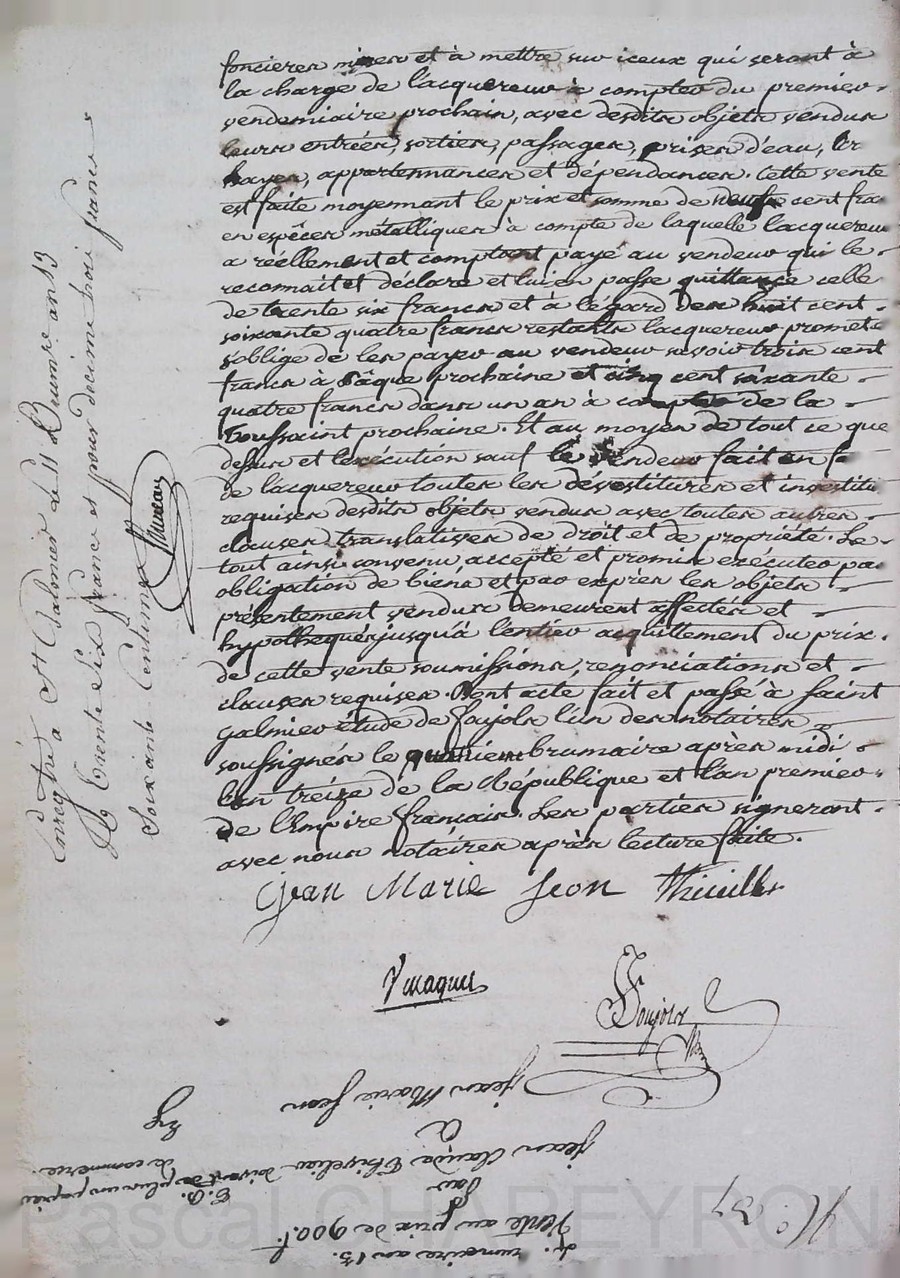 foncieres mises et à mettre sur iceux qui seront à
la charge de l'acquereur à compter du premier
vendemiaire prochain, avec desdits objets vendus
leurs entrées, sorties, passages, prises d'eau,
hayes, appartennances et dépendances. Cette vente
est faite moyennant le prix et somme de neuf cent fra
en espèces métalliques à compte de laquelle lacquereur
a réellement et comptant payé au vendeur qui le
reconnait et déclare et lui en passe quittance celle
de trente six francs et à légard des huit cent
soixante quatre francs restants lacquereur promet
s'oblige de les payer au vendeur savoir trois cent
francs à Pâque prochaine et cinq cent soixante
quatre francs dans un an à compter de la
Toussaint prochaine. Et au moyen de tout ce que
dessus et lexécution sauf le vendeur fait en f
de lacquereur toutes les dévestitures et investitu
requises desdits objets vendus avec toutes autres
clauses translatives de droit et de propriété. Le
tout ainsi convenu, accepté et promis exécuter pa
obligation de biens et par exprès les objets
présentement vendus demeurent affectés et
hypothequés jusqu'à l'entier acquittement du prix
de cette vente soumissions, renonciations et
clauses requises. Dont acte fait et passé à Saint
galmier étude de Soujols l'un des notaires
soussignés le brumaire après midi
l'an treize de la République et l'an premier
de l'Empire français. Les parties signeront
avec nous notaires après lecture faite.
Jean Marie Jeon Thivillier
Soujols
Enregtré à St Galmier le 11 Brumaire an 13
trente six francs et pour decime trois francs
Soixante Centimes
N.° 37
brumaire an 13.
Vente au prix de 900 f.
Par
Jean Claude Thivelier
à
Jean Marie Jeon
de commerce.